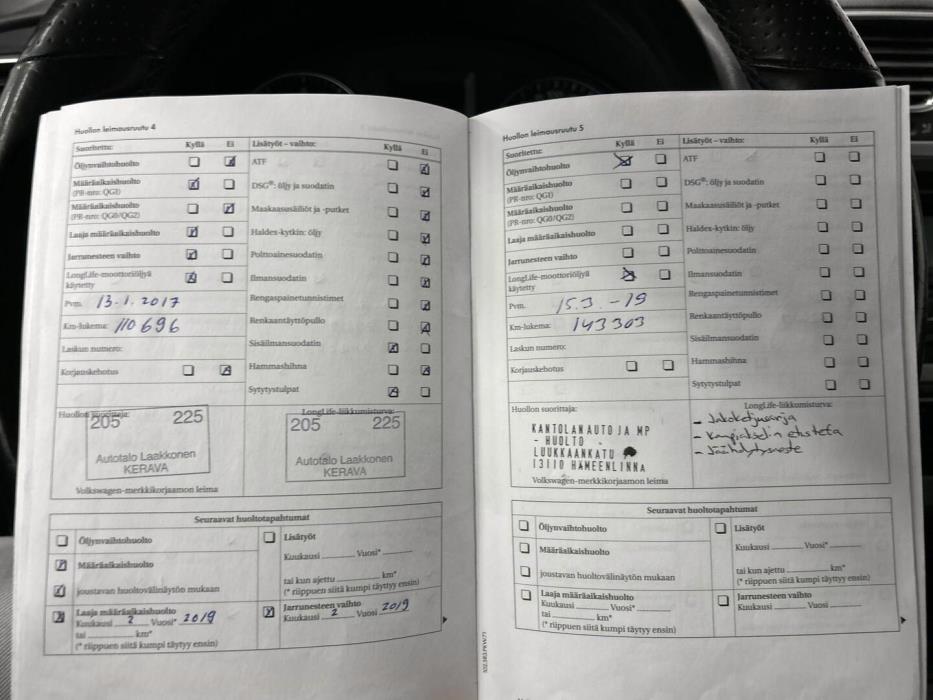 Huollon leimausruutu 4
Suoritettu: Kyllä Ei
Öljynvaihtohuolto
Määräaikaishuolto
(PR-nro: QG1)
Määräaikaishuolto
(PR-nro: QG0/QG2)
Laaja määräaikaishuolto
Jarrunesteen vaihto
LongLife-moottoriöljyä
käytetty
Pvm. 13.1.2017
Km-lukema: 110696
Laskun numero:
Korjauskehotus
Lisätyöt – vaihto: Kyllä Ei
ATF
DSG®: öljy ja suodatin
Maakaasusäiliöt ja -putket
Haldex-kytkin: öljy
Polttoainesuodatin
Ilmansuodatin
Rengaspainetunnistimet
Renkaantäyttöpullo
Sisäilmansuodatin
Hammashihna
Sytytystulpat
Huollon suorittaja:
205 225
Autotalo Laakkonen
KERAVA
LongLife-liikkumisturva:
205 225
Autotalo Laakkonen
KERAVA
Volkswagen-merkkikorjaamon leima
Seuraavat huoltotapahtumat
Öljynvaihtohuolto
Määräaikaishuolto
joustavan huoltovälinäytön mukaan
Laaja määräaikaishuolto
Kuukausi 2 Vuosi* 2019
tai km*
(* riippuen siitä kumpi täytyy ensin)
Lisätyöt
Kuukausi Vuosi*
tai kun ajettu km*
(* riippuen siitä kumpi täytyy ensin)
Jarrunesteen vaihto
Kuukausi 2 Vuosi 2019
Huollon leimausruutu 5
Suoritettu: Kyllä Ei
Öljynvaihtohuolto
Määräaikaishuolto
(PR-nro: QG1)
Määräaikaishuolto
(PR-nro: QG0/QG2)
Laaja määräaikaishuolto
Jarrunesteen vaihto
LongLife-moottoriöljyä
käytetty
Pvm. 15.3. -19
Km-lukema: 143303
Laskun numero:
Korjauskehotus
Lisätyöt – vaihto: Kyllä Ei
ATF
DSG®: öljy ja suodatin
Maakaasusäiliöt ja -putket
Haldex-kytkin: öljy
Polttoainesuodatin
Ilmansuodatin
Rengaspainetunnistimet
Renkaantäyttöpullo
Sisäilmansuodatin
Hammashihna
Sytytystulpat
Huollon suorittaja:
KANTOLAN AUTO JA MP
- HUOLTO
LUUKKAANKATU
13110 HÄMEENLINNA
Volkswagen-merkkikorjaamon leima
LongLife-liikkumisturva:
- Jakoketjusarja
- Kampiakselin etusteta
- Jäähdytysneste
Seuraavat huoltotapahtumat
Öljynvaihtohuolto
Määräaikaishuolto
joustavan huoltovälinäytön mukaan
Laaja määräaikaishuolto
Kuukausi Vuosi*
tai km*
(* riippuen siitä kumpi täytyy ensin)
Lisätyöt
Kuukausi Vuosi*
tai kun ajettu km*
(* riippuen siitä kumpi täytyy ensin)
Jarrunesteen vaihto
Kuukausi Vuosi